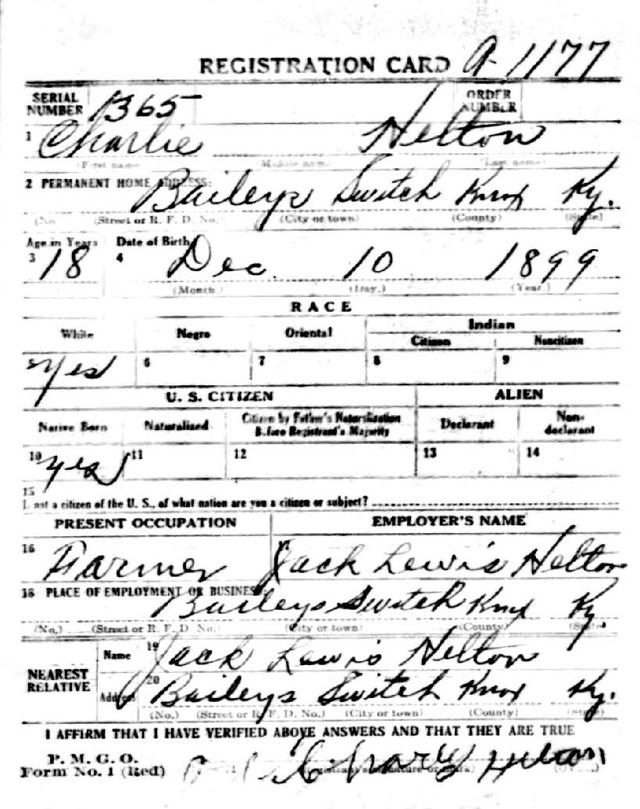 REGISTRATION CARD A-1177
SERIAL NUMBER 1365 ORDER NUMBER
1 Charlie Helton
(First name) (Middle name) (Last name)
2 PERMANENT HOME ADDRESS: Baileys Switch Knox Ky.
(No.) (Street or R. F. D. No.) (City or town) (County) (State)
Age in Years Date of Birth
3 18 4 Dec. 10 1899
(Month.) (Day.) (Year.)
RACE
White Negro Oriental Indian
Citizen Noncitizen
Yes 6 7 8 9
U. S. CITIZEN ALIEN
Native Born Naturalized Citizen by Father's Naturalization Before Registrant's Majority Declarant Non-declarant
10 Yes 11 12 13 14
15
If not a citizen of the U. S., of what nation are you a citizen or subject?
PRESENT OCCUPATION EMPLOYER'S NAME
16 Farmer Jack Lewis Helton
18 PLACE OF EMPLOYMENT OR BUSINESS: Baileys Switch Knox Ky
(No.) (Street or R. F. D. No.) (City or town) (County) (State)
NEAREST RELATIVE Name 19 Jack Lewis Helton
Address 20 Baileys Switch Knox Ky.
(No.) (Street or R. F. D. No.) (City or town) (County) (State)
I AFFIRM THAT I HAVE VERIFIED ABOVE ANSWERS AND THAT THEY ARE TRUE
P. M. G. O.
Form No. 1 (Red) Helton